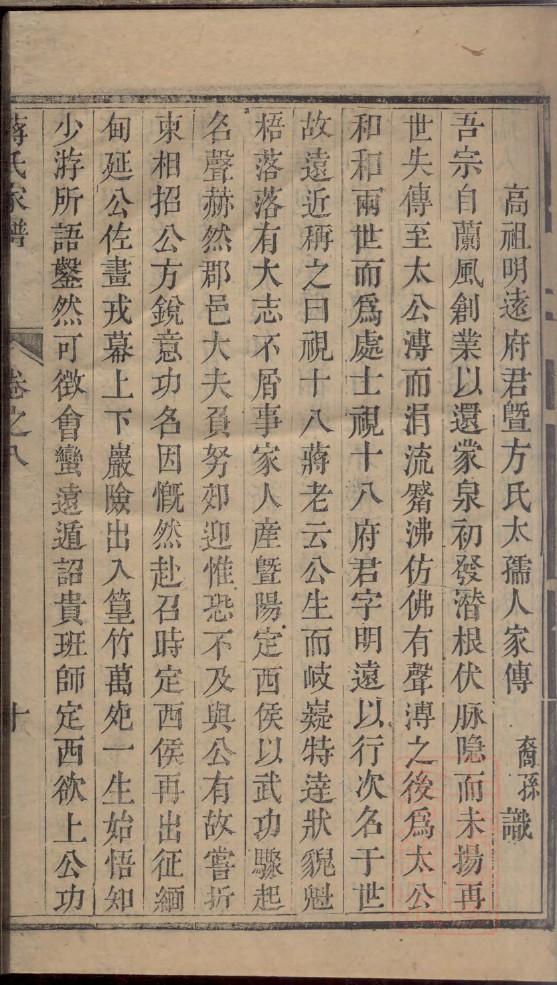 高祖明遠府君暨方氏太孺人家傳 裔孫 識
吾宗自蘭風創業以還蒙泉初發潛根伏脉隐而未揚再
世失傳至太公溥而涓流觱沸仿佛有聲溥之後爲太公
和和兩世而爲處士視十八府君字明遠以行次名于世
故遠近稱之曰視十八蔣老云公生而岐嶷特逹狀貌魁
梧落落有大志不屑事家人産暨陽定西侯以武功驟起
名聲赫然郡邑大夫負弩郊迎惟恐不及與公有故嘗折
柬相招公方銳意功名因慨然赴召時定西侯再出征緬
甸延公佐畫戎幕上下巖險出入篁竹萬死一生始悟知
少游所語鑿然可徵會蠻遠遁詔貴班師定西欲上公功
蔣氏家譜 卷之八 十